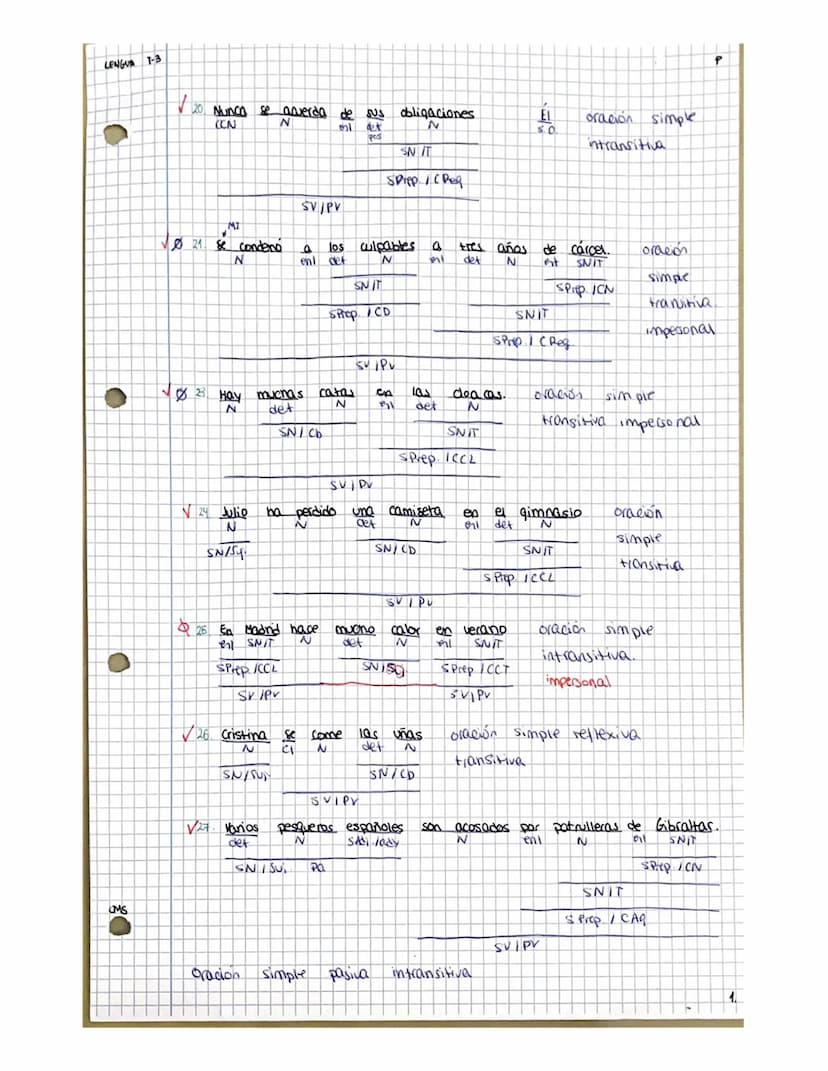 LENGUA T-3
P
20. Nunca se acuerda de sus obligaciones Él oración simple
CCN N enl det N S.O. intransitiva
pos
SN/T
SPrep / CReg
SV/PV
MI
21. Se condenó a los culpables a tres años de cárcel. oración
N enl det N enl det N enl SN/T simple
SN/T SPrep/CN transitiva
SPrep / CD SN/T impersonal
SPrep / CReg
SV/PV
23. Hay muchas ratas en las cloacas. oración simple
N det N enl det N transitiva impersonal
SN/CD SN/T
SPrep / CCL
SV/PV
24. Julio ha perdido una camiseta en el gimnasio oración
N N det N enl det N simple
SN/Suj. SN/CD SN/T transitiva
SPrep / CCL
SV/PV
25. En Madrid hace mucho calor en verano oración simple
enl SN/T N det N enl SN/T intransitiva.
SPrep/CCL SN/ SPrep/CCT impersonal
SV/PV SV/PV
26. Cristina se come las uñas oración simple reflexiva
N CI N det N transitiva
SN/Suj. SN/CD
SV/PV
27. Varios pesqueros españoles son acosados por patrulleras de Gibraltar.
det N SAdj/ady N enl N enl SN/T
SN/Suj. Pa SPrep/CN
SN/T
SPrep / CAg
CMS
SV/PV
Oración simple pasiva intransitiva
1.